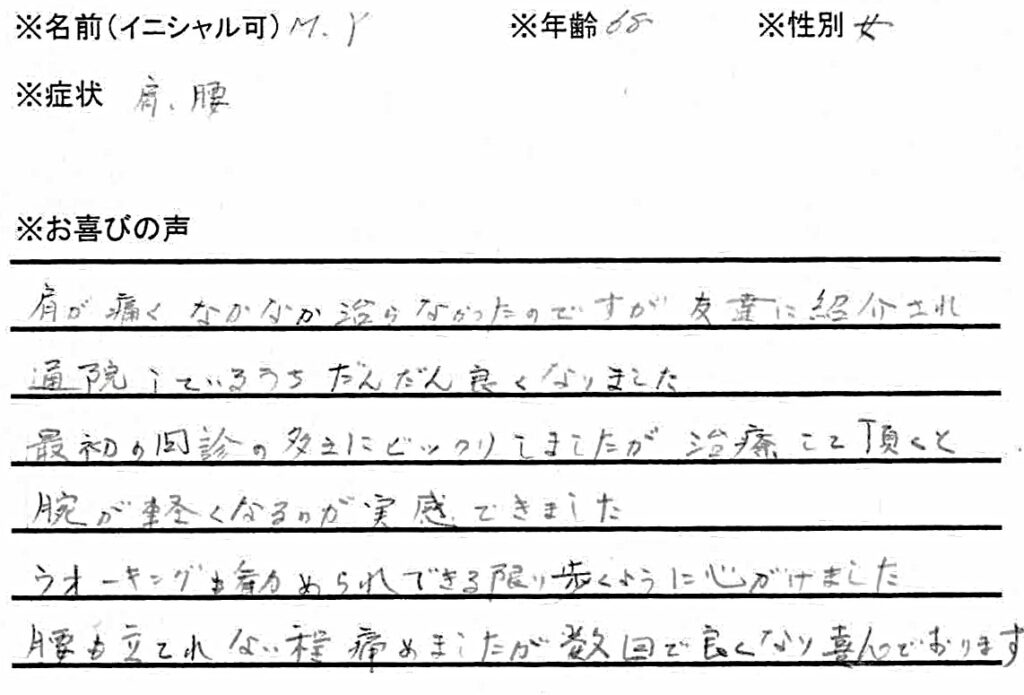 ※名前(イニシャル可) M.Y ※年齢 68 ※性別 女
※症状 肩、腰
※お喜びの声
肩が痛くなかなか治らなかったのですが友達に紹介され
通院しているうちだんだん良くなりました
最初の回診の多さにビックリしましたが治療して頂くと
腕が軽くなるのが実感できました
ウオーキングも勧められできる限り歩くように心がけました
腰も立てれない程痛めましたが数回で良くなり喜んでおります